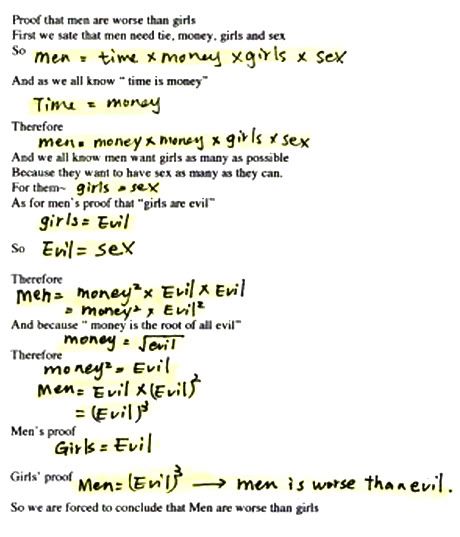 Proof that men are worse than girls
First we sate that men need tie, money, girls and sex
So men = time x money x girls x sex
And as we all know " time is money"
Time = money
Therefore
men = money x money x girls x sex
And we all know men want girls as many as possible
Because they want to have sex as many as they can.
For them~ girls = sex
As for men's proof that "girls are evil"
girls = Evil
So Evil = sex
Therefore
men = money² x Evil x Evil
= money² x Evil²
And because " money is the root of all evil"
money = √evil
Therefore
money² = Evil
Men = Evil x (Evil)²
= (Evil)³
Men's proof
Girls = Evil
Girls' proof Men = (Evil)³ → men is worse than evil.
So we are forced to conclude that Men are worse than girls